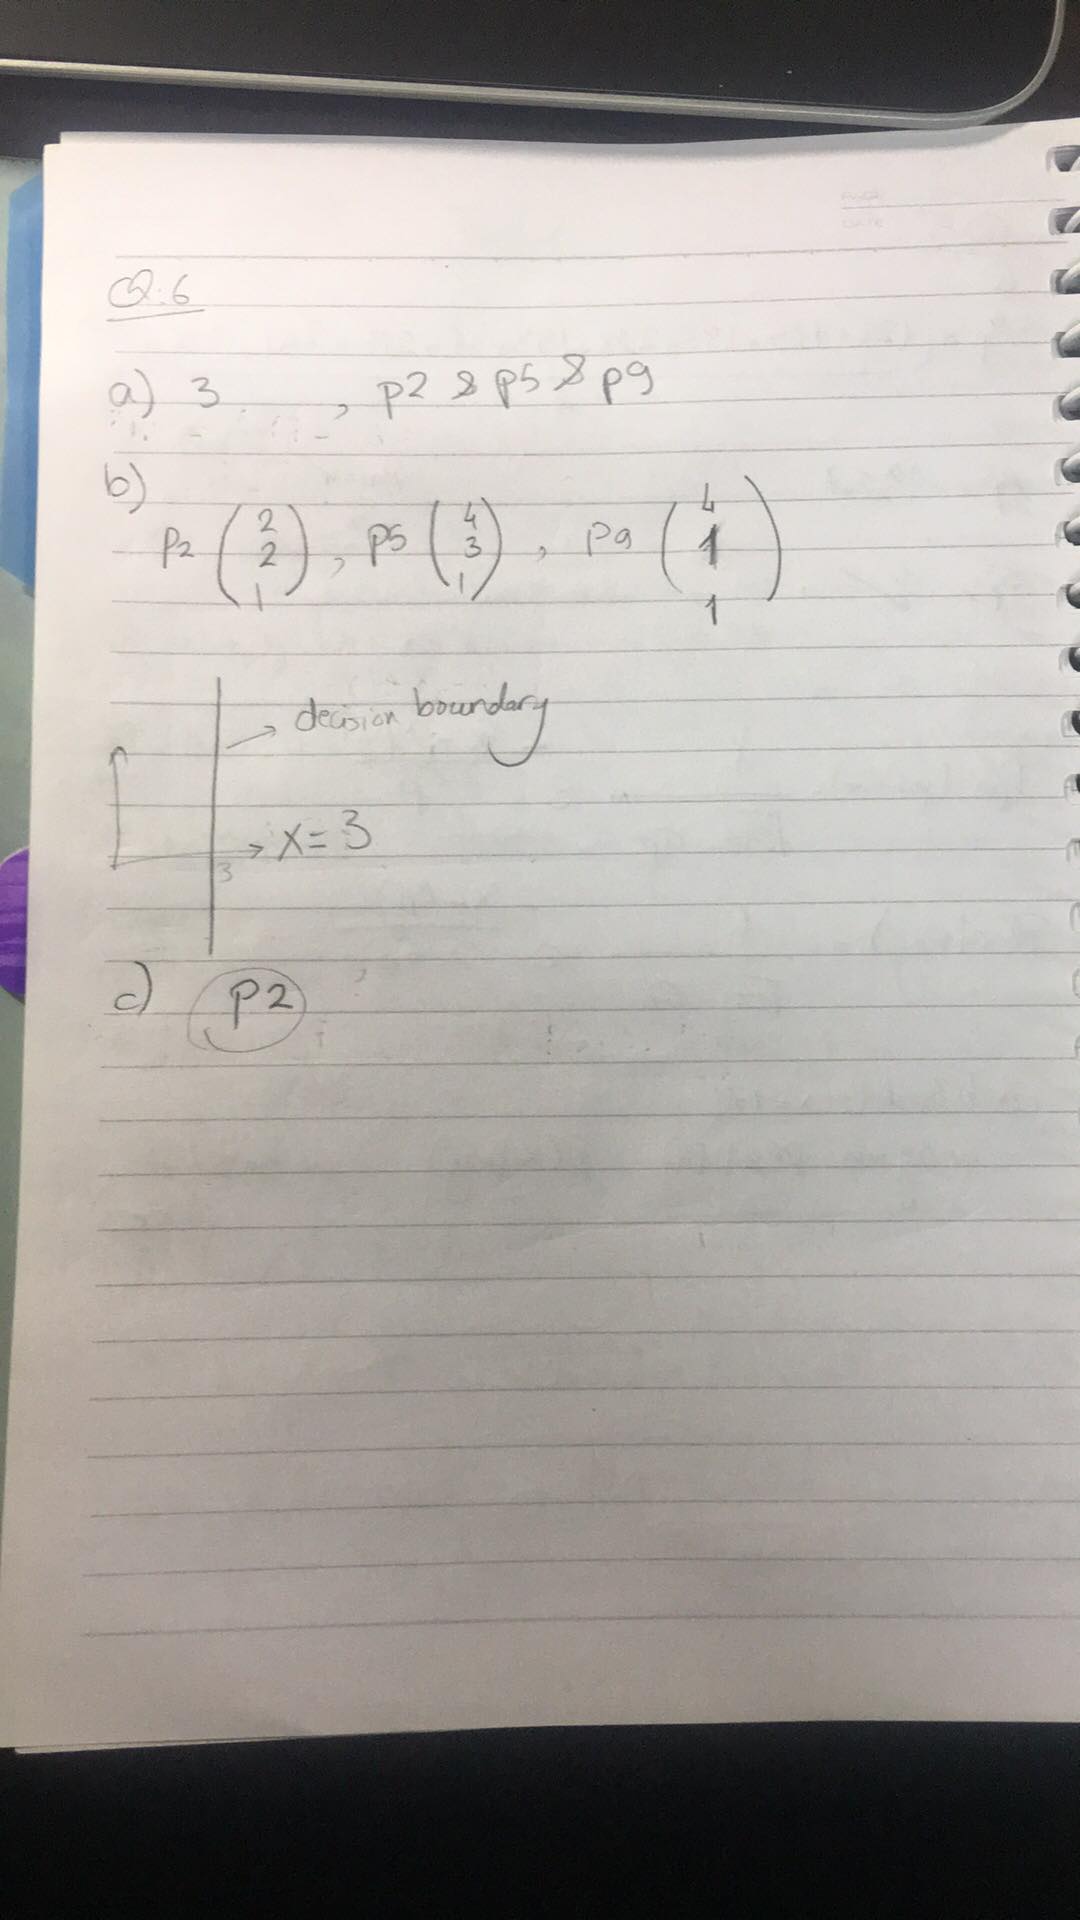 Q.6
a) 3 , p2 & p5 & p9
b)
P2 (2 2 1), P5 (4 3 1), P9 (4 1 1)
→ decision boundary
3 → x=3
c) p2